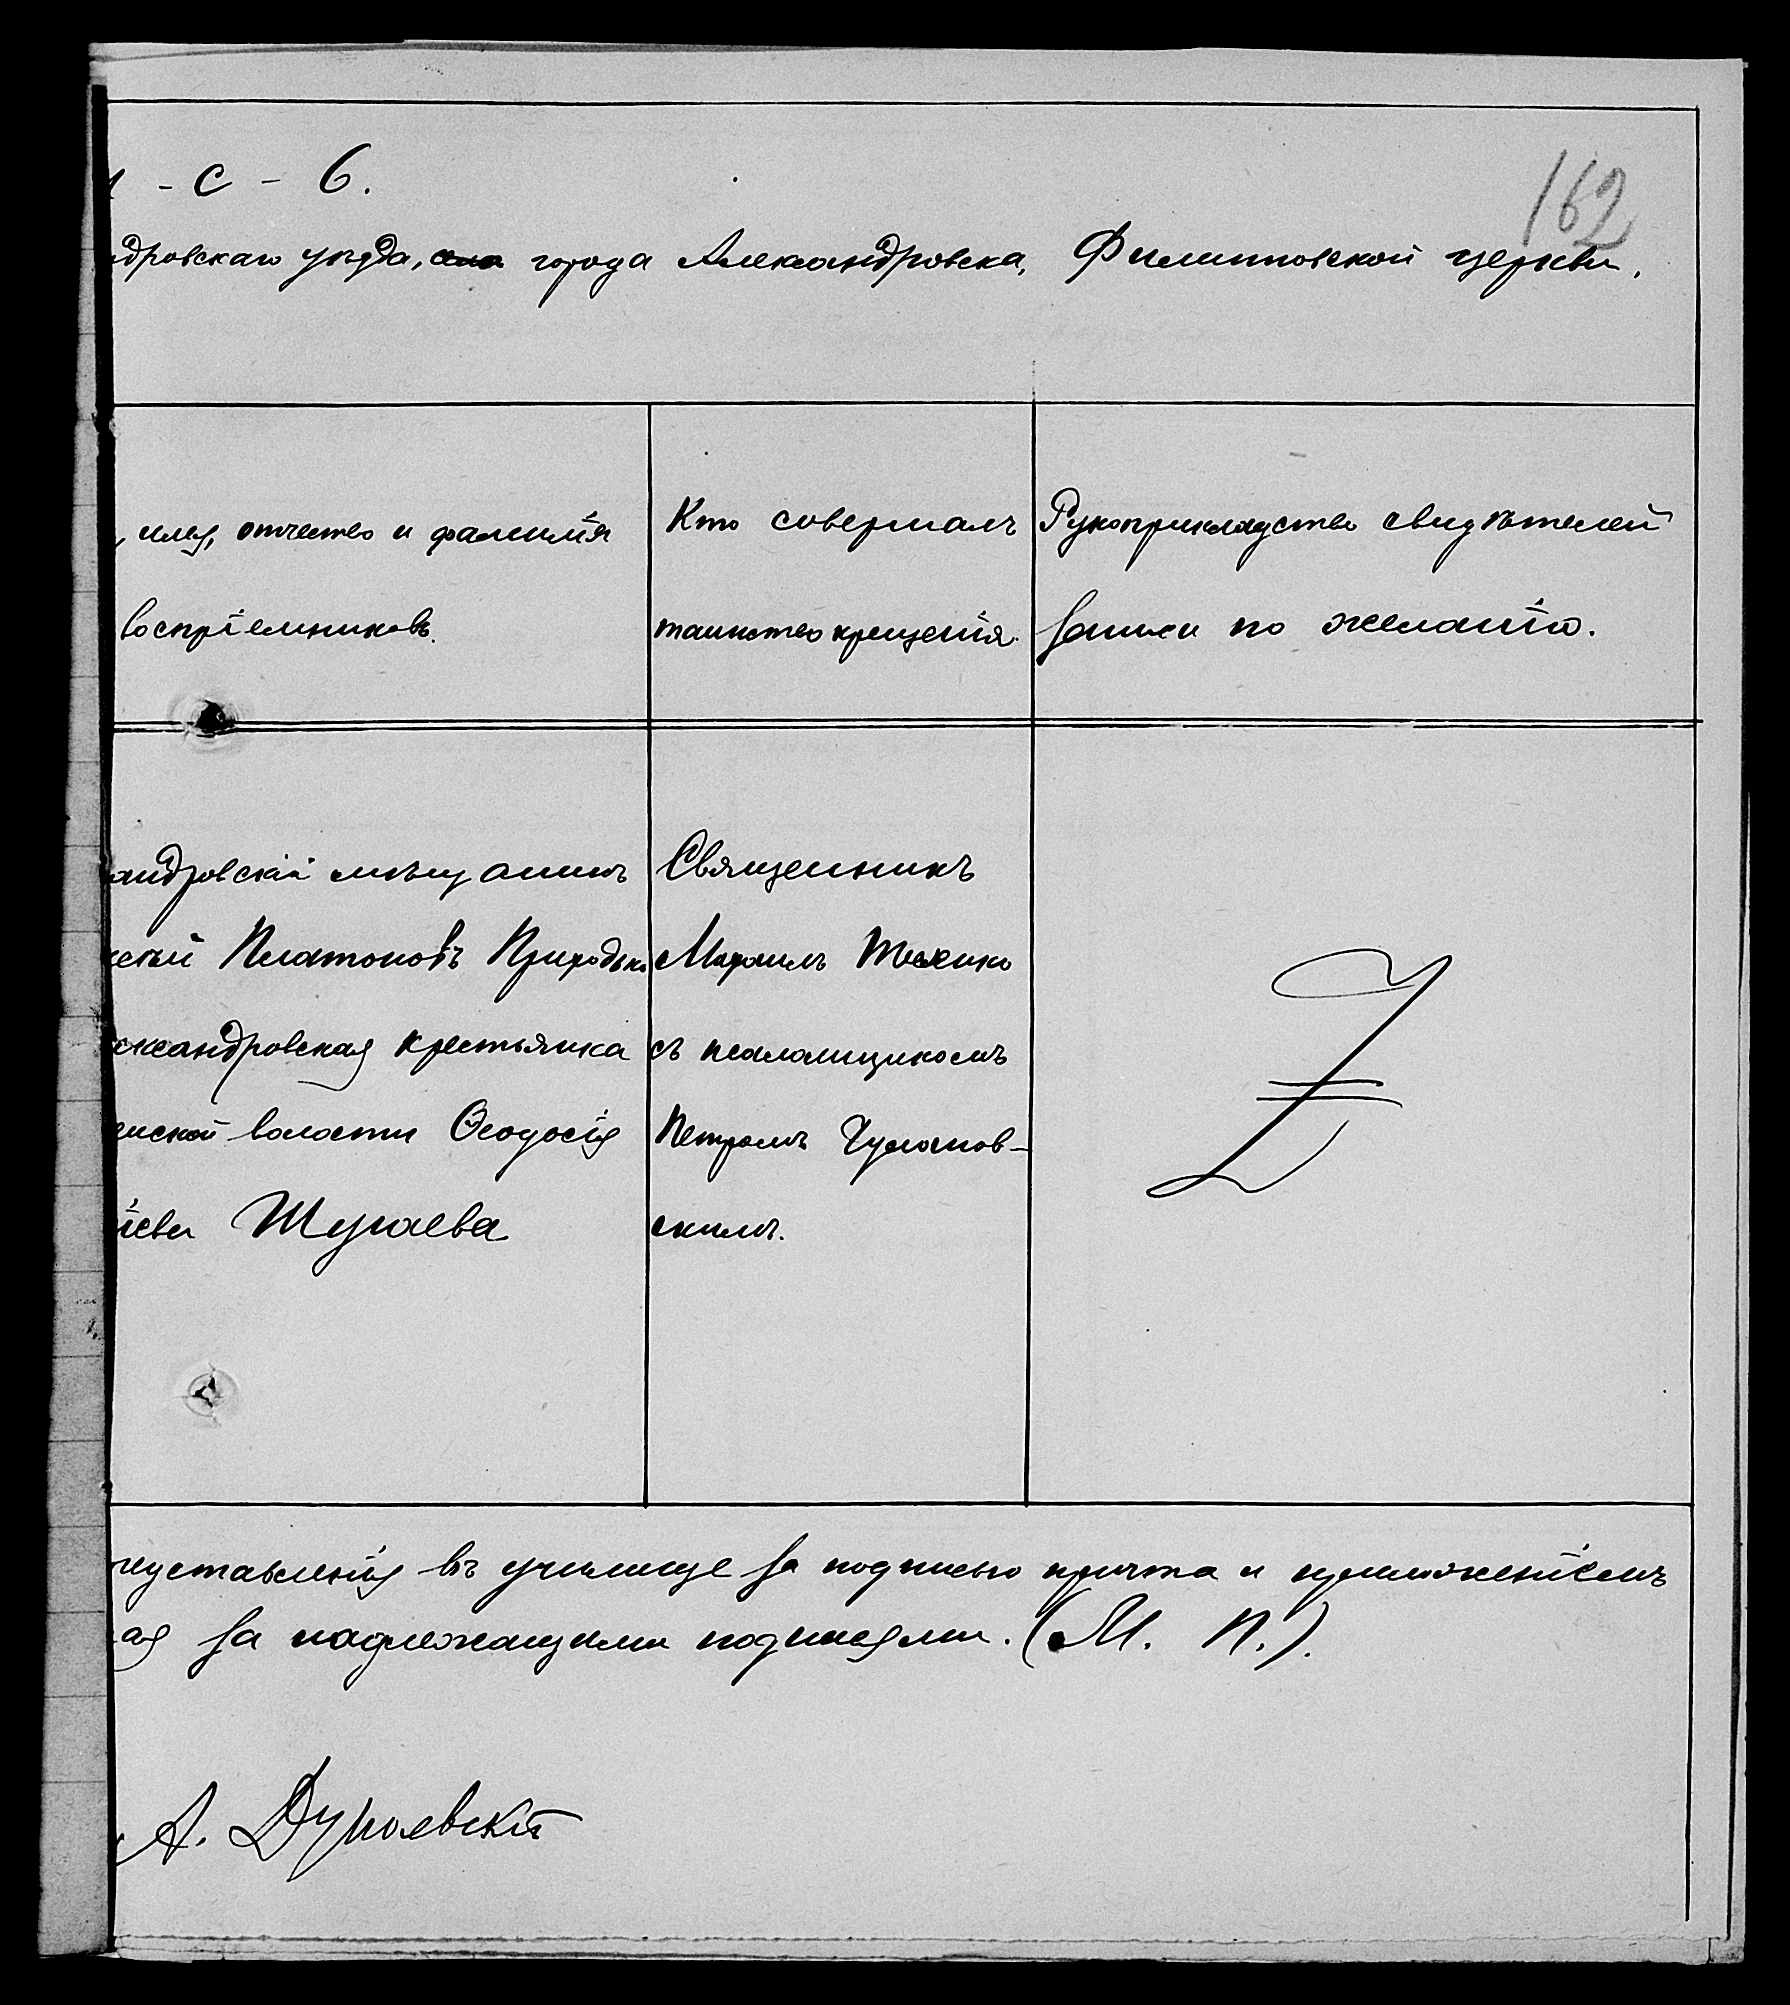 - с - 6.
162
дровскаго уѣзда, города Александровска, Филипповской церкви.
имя, отчество и фамилія
воспріемниковъ.
Кто совершалъ
таинство крещенія.
Рукоприкладство свидѣтелей
записи по желанію.
андровскій мѣщанинъ
Платоновъ
ександровская крестьянка
енской волости Ѳеодосія
іева Шугаева
Священникъ
Михаилъ
съ псаломщикомъ
Петромъ
скимъ.
редставленія въ училище за подписью причта и приложеніемъ
ая за надлежащими подписями. (М. П.).
А. Дунаевскій